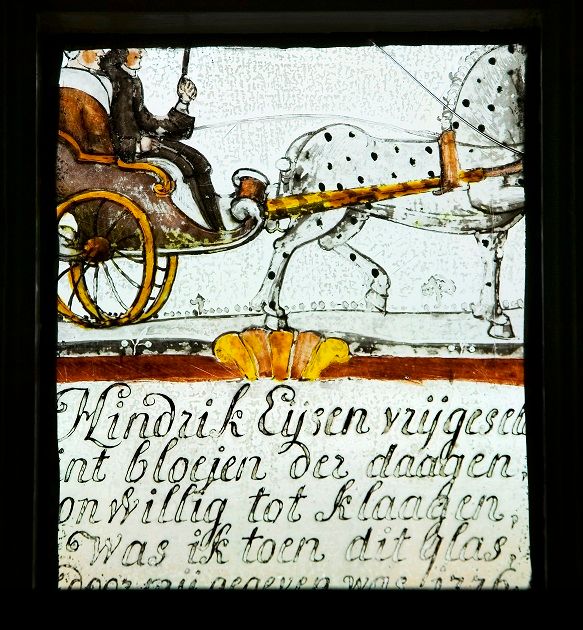 Hindrik Eijsen vrijgesel
int bloejen der daagen,
onwillig tot klaagen,
Was ik toen dit glas,
Door mij gegeven was 1776